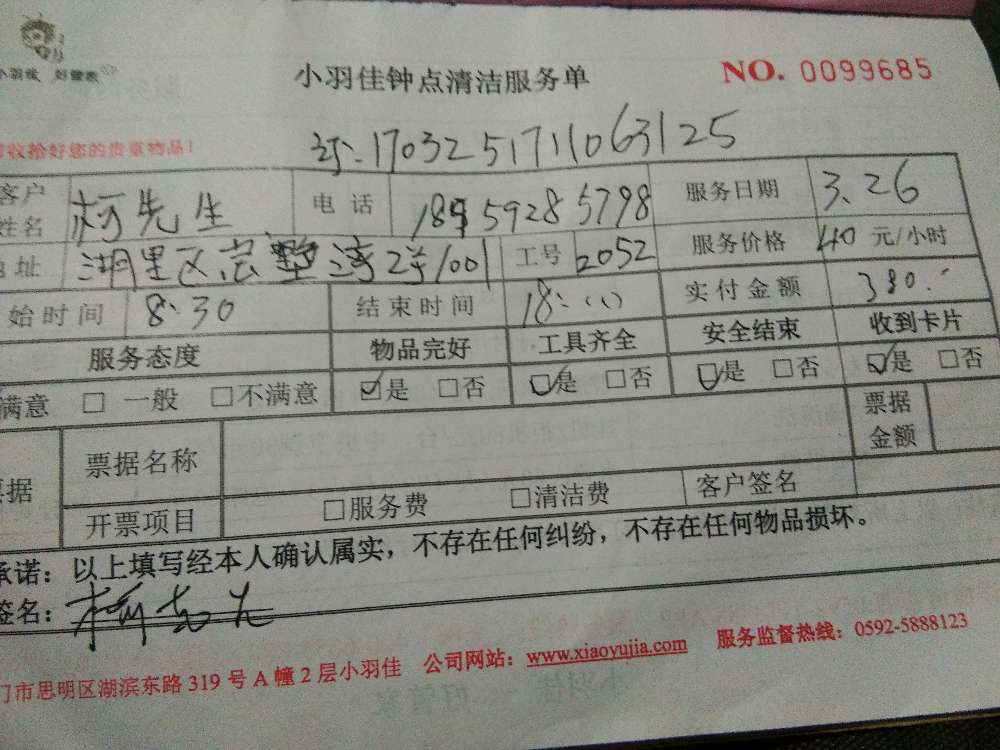 小羽佳 好管家
小羽佳钟点清洁服务单 NO. 0099685
收拾好您的贵重物品！ 1703251711063125
客户姓名 柯先生 电话 服务日期 3.26
地址 湖里区 湾2洋1001 工号 2052 服务价格 40 元/小时
始时间 8:30 结束时间 18: 实付金额 380.
服务态度 物品完好 工具齐全 安全结束 收到卡片
满意 □ 一般 □不满意 ☑是 □否 ☑是 □否 ☑是 □否 ☑是 □否
据 票据名称 票据金额
开票项目 □服务费 □清洁费 客户签名
承诺：以上填写经本人确认属实，不存在任何纠纷，不存在任何物品损坏。
签名：
门市思明区湖滨东路 319 号 A 幢 2 层小羽佳 公司网站：www.xiaoyujia.com 服务监督热线：0592-5888123